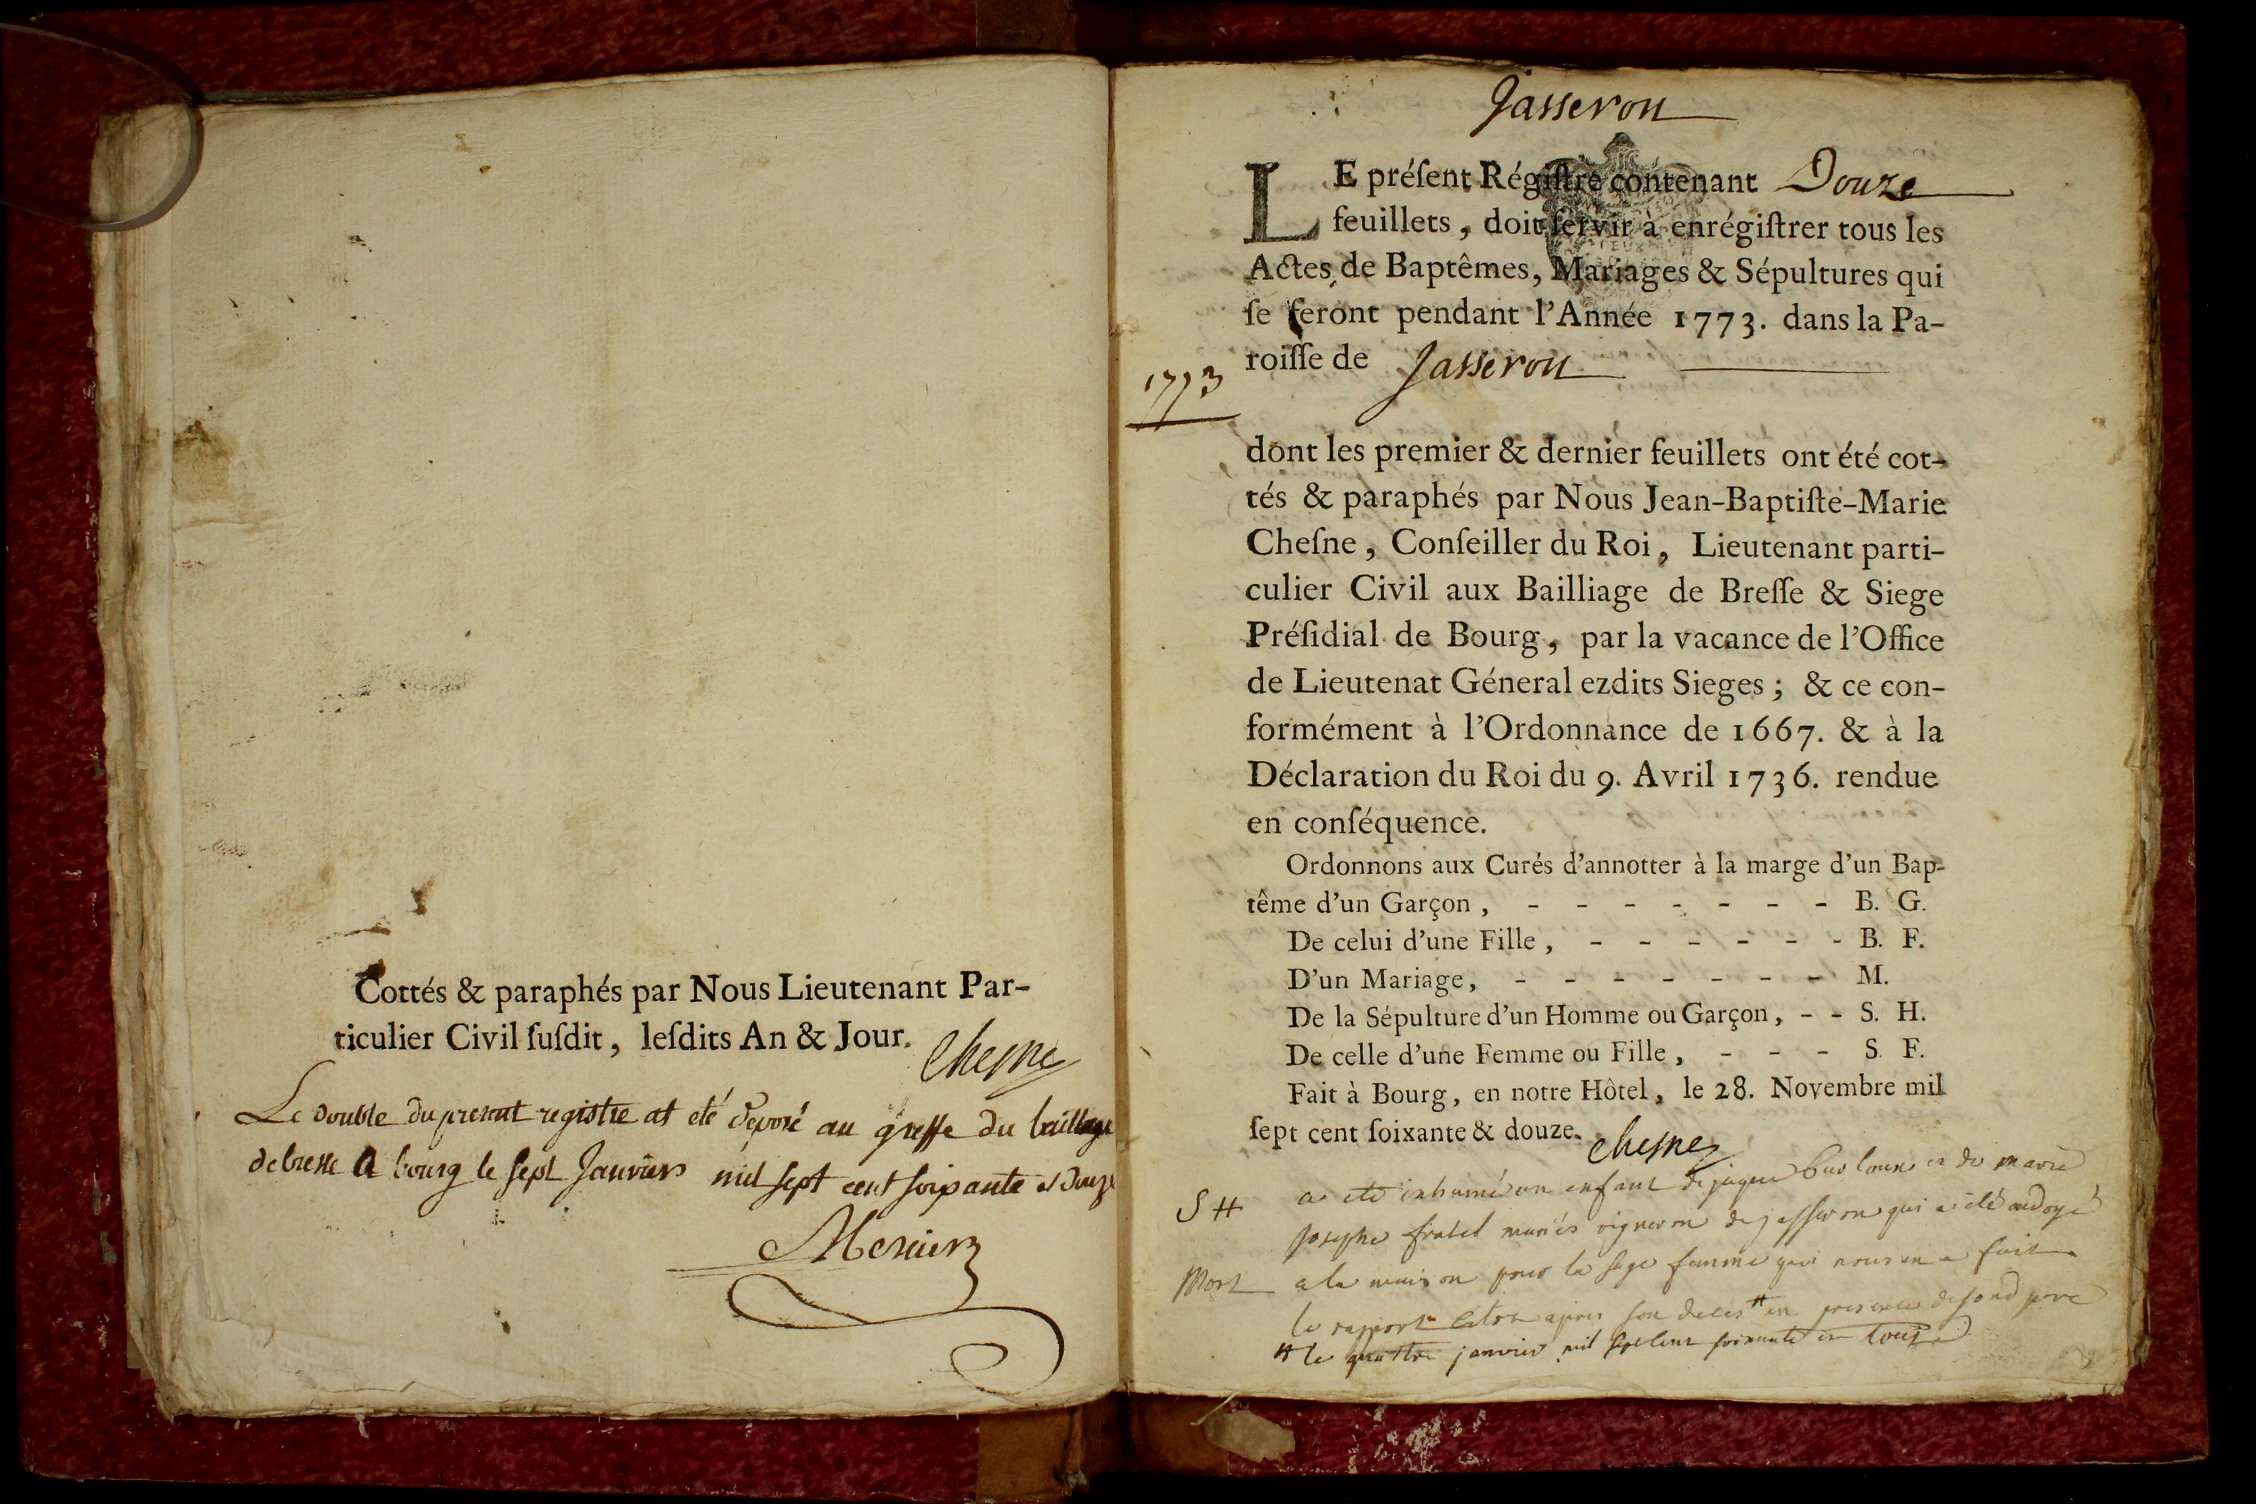 Cottés & paraphés par Nous Lieutenant Par-
ticulier Civil ſuſdit, leſdits An & Jour.
Chesne
Le double du present registre at eté deposé au greffe du bailliage
de bresse a bourg le sept Janvier mil sept cent soixante et douze
Jasseron
LE préſent Régiſtre contenant Douze
feuillets, doit ſervir à enrégiſtrer tous les
Actes de Baptêmes, Mariages & Sépultures qui
ſe feront pendant l'Année 1773. dans la Pa-
roiſſe de Jasseron
1773
dont les premier & dernier feuillets ont été cot-
tés & paraphés par Nous Jean-Baptiſte-Marie
Cheſne, Conſeiller du Roi, Lieutenant parti-
culier Civil aux Bailliage de Breſſe & Siege
Préſidial de Bourg, par la vacance de l'Office
de Lieutenat Géneral ezdits Sieges; & ce con-
formément à l'Ordonnance de 1667. & à la
Déclaration du Roi du 9. Avril 1736. rendue
en conſéquence.
Ordonnons aux Curés d'annotter à la marge d'un Bap-
tême d'un Garçon, - - - - - - - B. G.
De celui d'une Fille, - - - - - - B. F.
D'un Mariage, - - - - - - - M.
De la Sépulture d'un Homme ou Garçon, - - S. H.
De celle d'une Femme ou Fille, - - - S. F.
Fait à Bourg, en notre Hôtel, le 28. Novembre mil
ſept cent ſoixante & douze.
Chesne
S H
a été inhumé un enfant de jaque et de marie
josephe mariés vigneron de jasseron qui a été ondoyé
Mort
a la maison par la sage femme qui nous en a fait
le rapport apres son deces # en presence de son père
# le quattre janvier mil sept cent soixante et